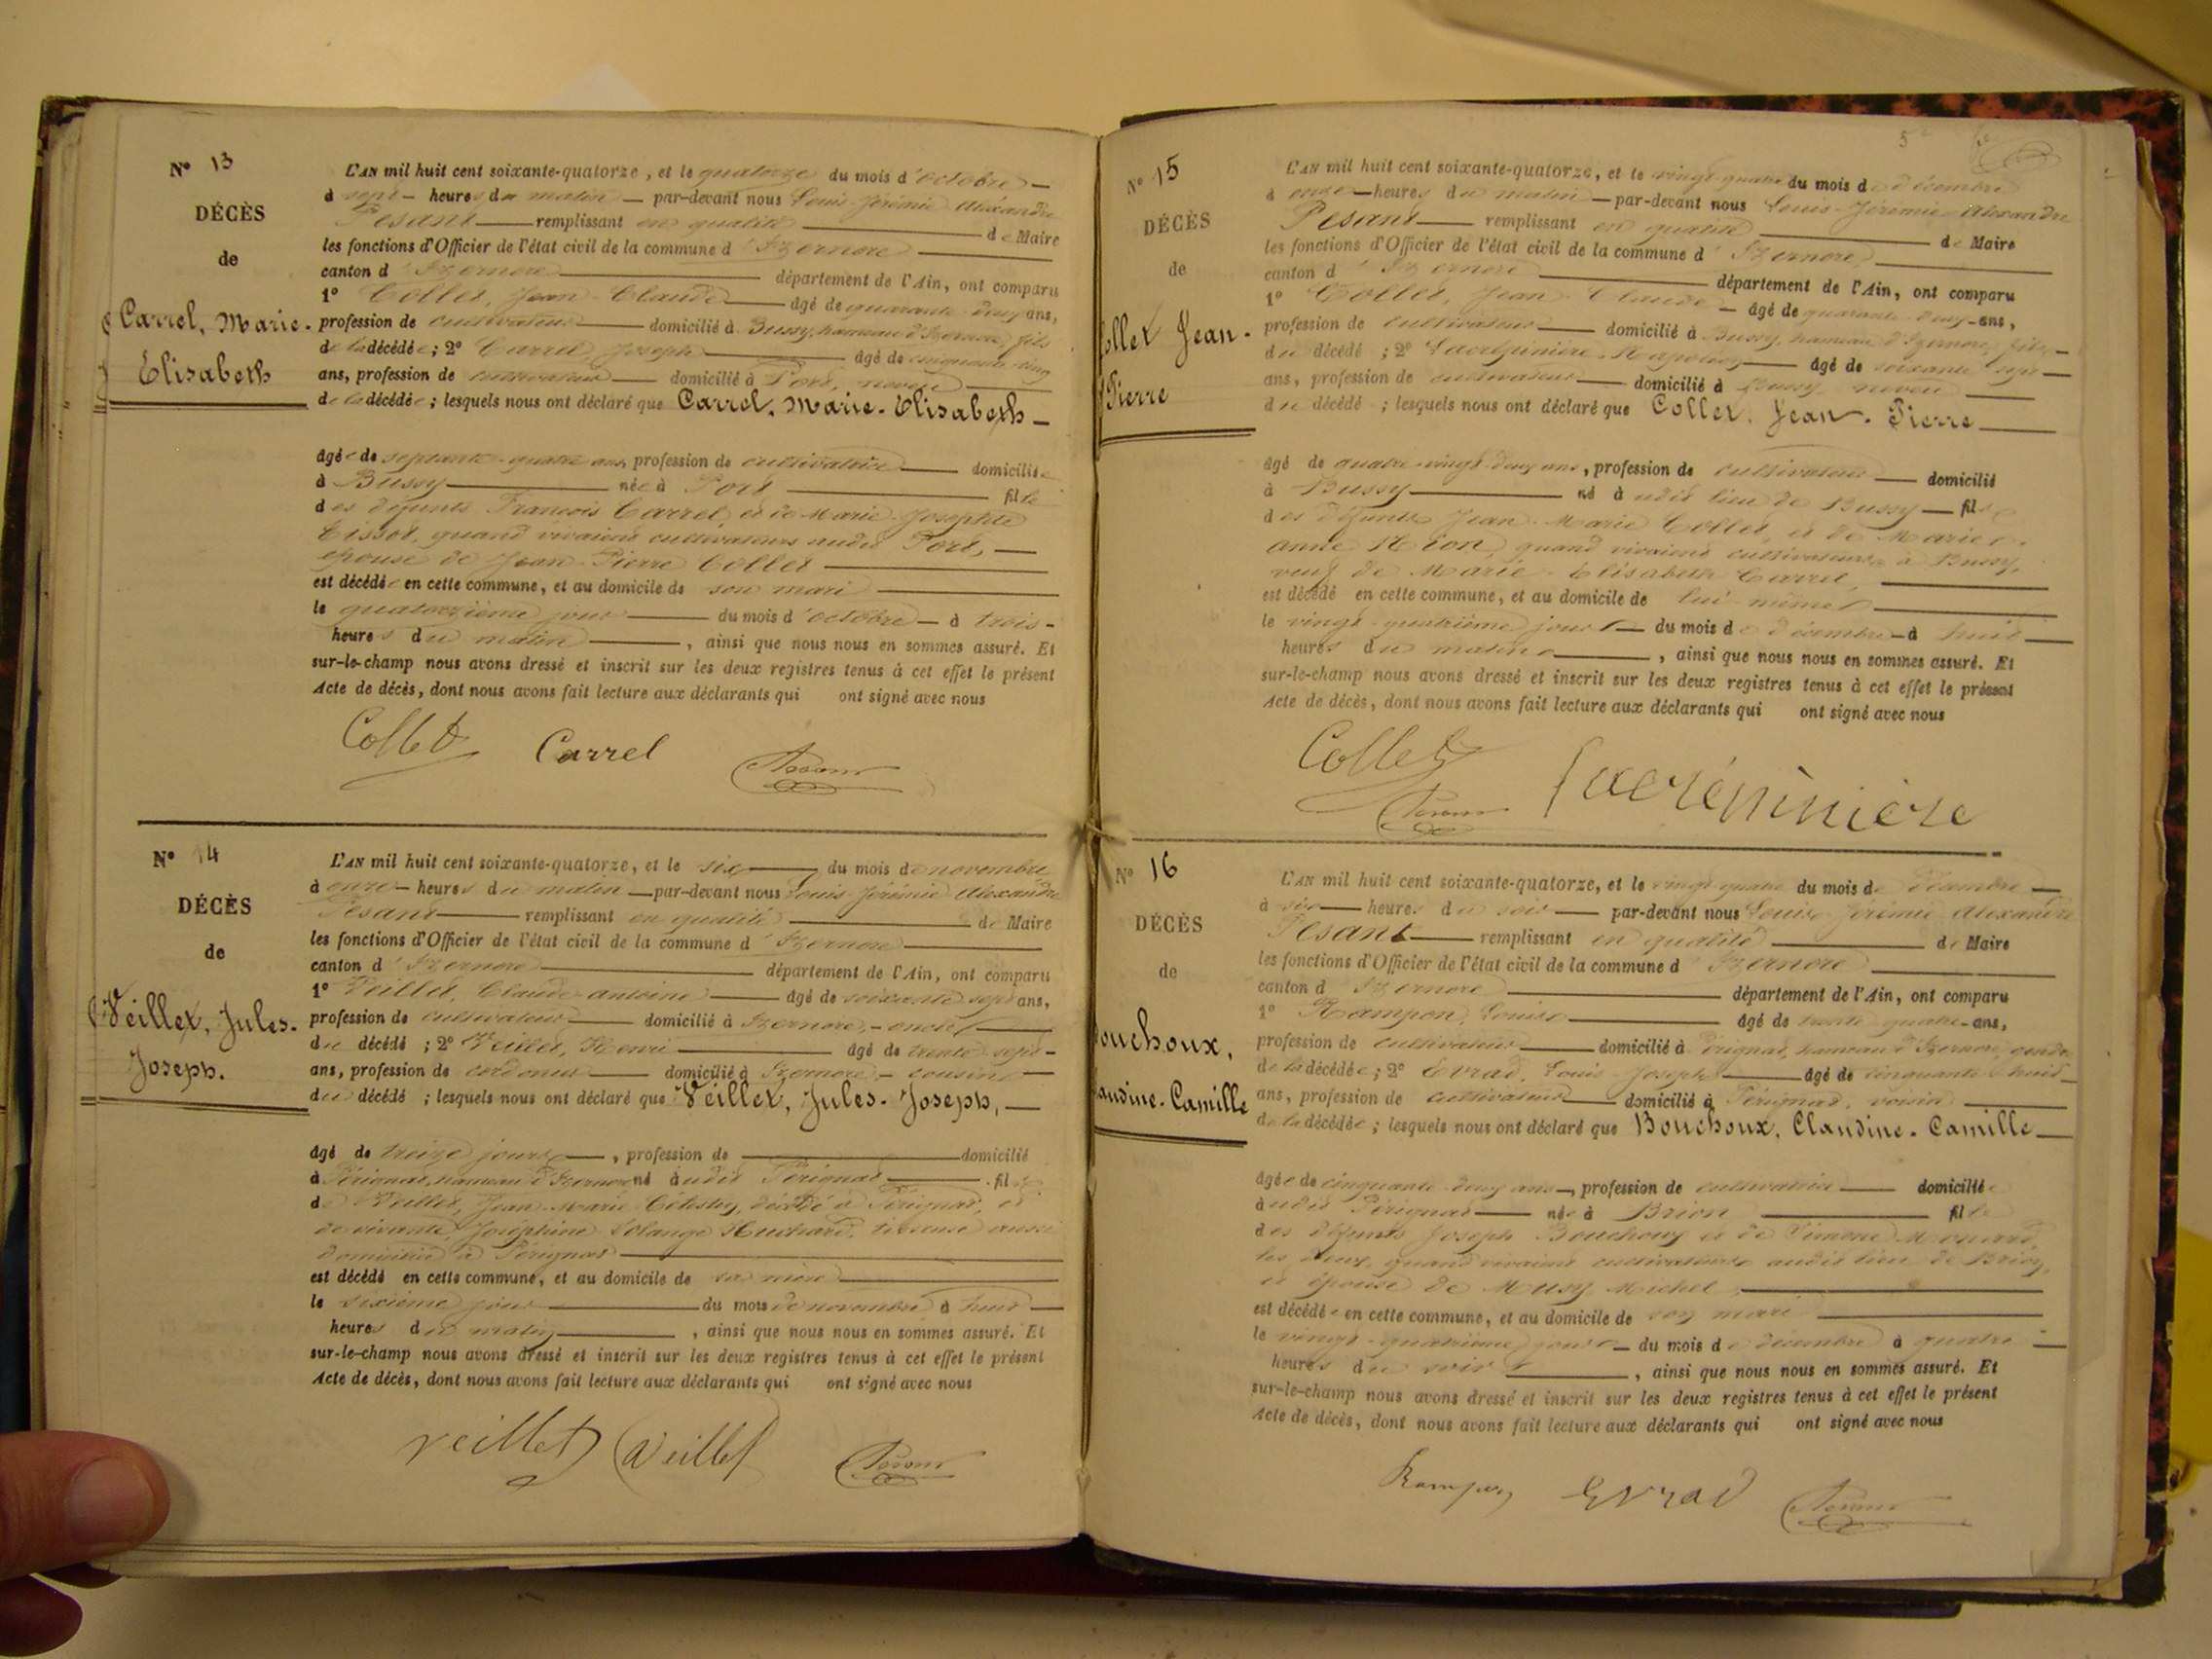 N° 13
DÉCÈS
de
Carrel, Marie-
Elisabeth
L'AN mil huit cent soixante-quatorze, et le quatorze du mois d'octobre
à sept heures du matin par-devant nous Louis Jérémie Alexandre
Pesant remplissant en qualité de Maire
les fonctions d'Officier de l'état civil de la commune d'Izernore
canton d'Izernore département de l'Ain, ont comparu
1° Collet, Jean-Claude âgé de quarante-deux ans,
profession de cultivateur domicilié à Bussy, hameau d'Izernore, fils
de la décédée ; 2° Carrel, Joseph âgé de cinquante-cinq
ans, profession de cultivateur domicilié à Port, neveu
de la décédée ; lesquels nous ont déclaré que Carrel, Marie-Elisabeth
âgée de septante-quatre ans, profession de cultivatrice domiciliée
à Bussy née à Port fille
des défunts François Carrel, et de Marie-Josephte
Tissot, quand vivaient cultivateurs audit Port,
épouse de Jean-Pierre Collet
est décédée en cette commune, et au domicile de son mari
le quatorzième jour du mois d'octobre à trois
heures du matin, ainsi que nous nous en sommes assuré. Et
sur-le-champ nous avons dressé et inscrit sur les deux registres tenus à cet effet le présent
Acte de décès, dont nous avons fait lecture aux déclarants qui ont signé avec nous
Collet Carrel Pesant
N° 14
DÉCÈS
de
Veillet, Jules-
Joseph.
L'AN mil huit cent soixante-quatorze, et le six du mois de novembre
à onze heures du matin par-devant nous Louis Jérémie Alexandre
Pesant remplissant en qualité de Maire
les fonctions d'Officier de l'état civil de la commune d'Izernore
canton d'Izernore département de l'Ain, ont comparu
1° Veillet, Claude-antoine âgé de soixante-sept ans,
profession de cultivateur domicilié à Izernore, oncle
du décédé ; 2° Veillet, Henri âgé de trente-sept
ans, profession de cordonnier domicilié à Izernore, cousin
du décédé ; lesquels nous ont déclaré que Veillet, Jules-Joseph,
âgé de treize jours, profession de domicilié
à Pérignat, hameau d'Izernore né audit Pérignat fils
de Veillet, Jean-Marie Célestin, décédé à Pérignat, et
de vivante, Joséphine Solange Huchard, tisseuse aussi
domiciliée à Pérignat
est décédé en cette commune, et au domicile de sa mère
le sixième jour du mois de novembre à huit
heures du matin, ainsi que nous nous en sommes assuré. Et
sur-le-champ nous avons dressé et inscrit sur les deux registres tenus à cet effet le présent
Acte de décès, dont nous avons fait lecture aux déclarants qui ont signé avec nous
veillet Veillet Pesant
5
N° 15
DÉCÈS
de
ollet Jean-
Pierre
L'AN mil huit cent soixante-quatorze, et le vingt-quatre du mois de décembre
à onze heures du matin par-devant nous Louis-Jérémie Alexandre
Pesant remplissant en qualité de Maire
les fonctions d'Officier de l'état civil de la commune d'Izernore,
canton d'Izernore département de l'Ain, ont comparu
1° Collet, Jean-Claude âgé de quarante-deux ans,
profession de cultivateur domicilié à Bussy, hameau d'Izernore, fils
du décédé ; 2° Lacrépinière, Napoléon âgé de soixante-sept
ans, profession de cultivateur domicilié à Bussy neveu
du décédé ; lesquels nous ont déclaré que Collet, Jean-Pierre
âgé de quatre-vingt-deux ans, profession de cultivateur domicilié
à Bussy né à udit lieu de Bussy fils
des défunts Jean-Marie Collet, et de Marie-
anne quand vivaient cultivateurs à Bussy,
veuf de Marie-Elisabeth Carrel,
est décédé en cette commune, et au domicile de lui-même
le vingt-quatrième jour du mois de décembre à huit
heures du matin, ainsi que nous nous en sommes assuré. Et
sur-le-champ nous avons dressé et inscrit sur les deux registres tenus à cet effet le présent
Acte de décès, dont nous avons fait lecture aux déclarants qui ont signé avec nous
Collet Lacrépinière
Pesant
N° 16
DÉCÈS
de
ouchoux,
laudine-Camille
L'AN mil huit cent soixante-quatorze, et le vingt-quatre du mois de décembre
à six heures du soir par-devant nous Louis Jérémie Alexandre
Pesant remplissant en qualité de Maire
les fonctions d'Officier de l'état civil de la commune d'Izernore
canton d'Izernore département de l'Ain, ont comparu
1° Rampon, Louis âgé de trente-quatre ans,
profession de cultivateur domicilié à Pérignat, hameau d'Izernore, gendre
de la décédée ; 2° Evrad, Louis-Joseph âgé de cinquante-huit
ans, profession de cultivateur domicilié à Pérignat, voisin
de la décédée ; lesquels nous ont déclaré que Bouchoux, Claudine-Camille
âgée de cinquante-deux ans, profession de cultivatrice domiciliée
audit Pérignat née à Brion fille
des défunts Joseph Bouchoux et de Simone
les deux, quand vivaient cultivateurs audit lieu de Brion,
et épouse de Musy Michel
est décédée en cette commune, et au domicile de son mari
le vingt-quatrième jour du mois de décembre à quatre
heures du soir, ainsi que nous nous en sommes assuré. Et
sur-le-champ nous avons dressé et inscrit sur les deux registres tenus à cet effet le présent
Acte de décès, dont nous avons fait lecture aux déclarants qui ont signé avec nous
Rampon Evrad Pesant